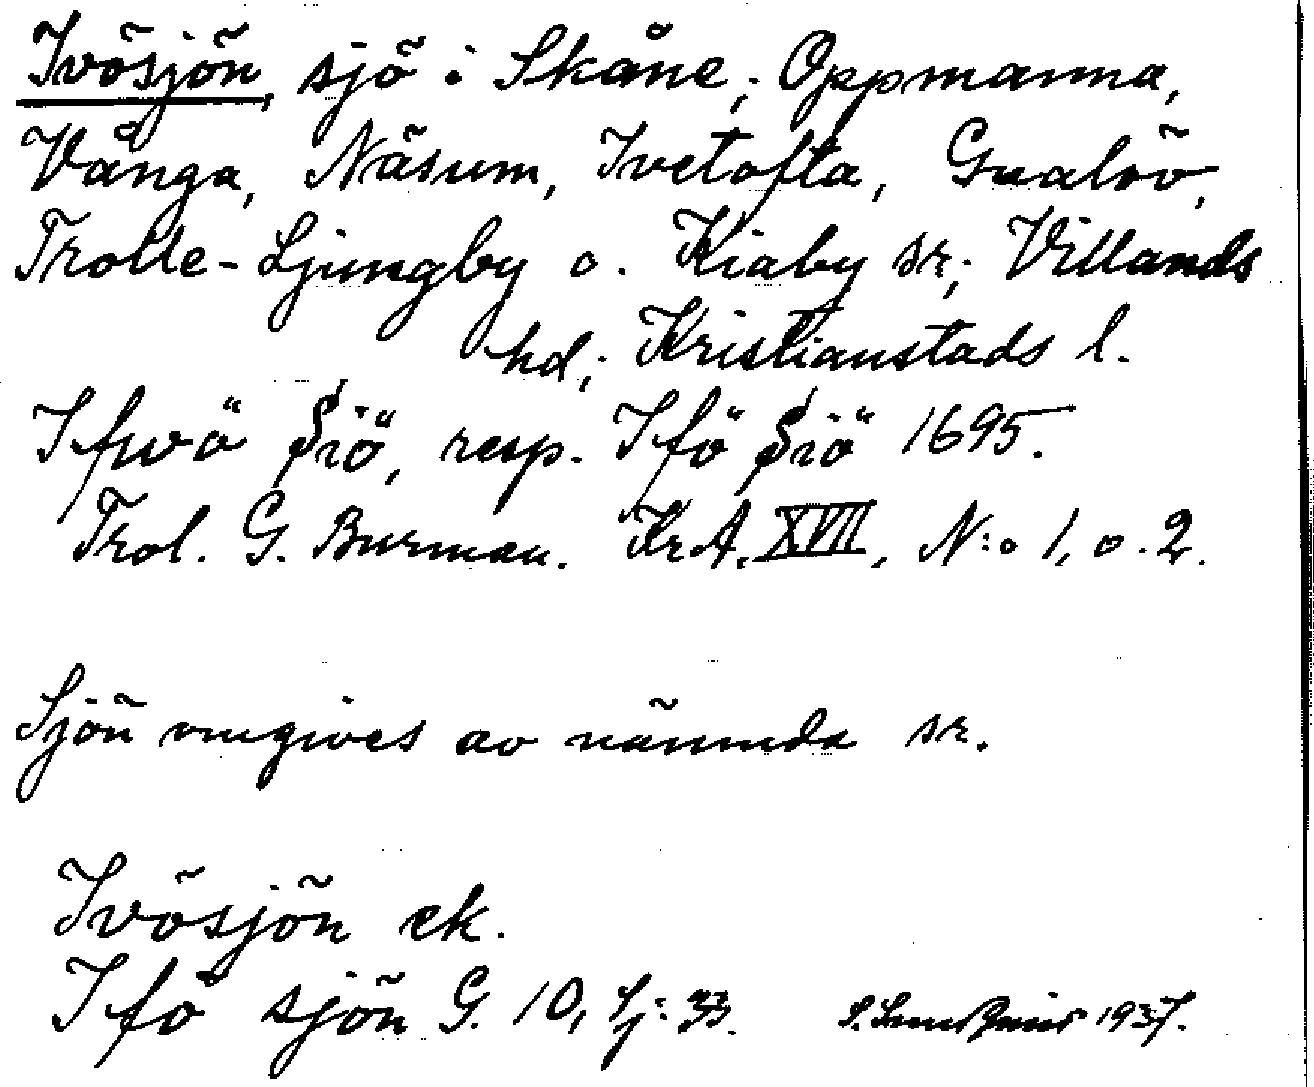 Ivösjön, sjö i Skåne; Oppmanna,
Vånga, Näsum, Ivetofta, Gualöv,
Trolle-Ljungby o. Kiaby sr; Villands
hd; Kristianstads l.
Ifwö Siö, resp. Ifö Siö 1695.
Trol. G. Burman. KrA. XVII, N:o 1, o. 2.
Sjön omgives av nämnda sr.
Ivösjön ek.
Ifö sjön G. 10, Sj: 33. 1937.